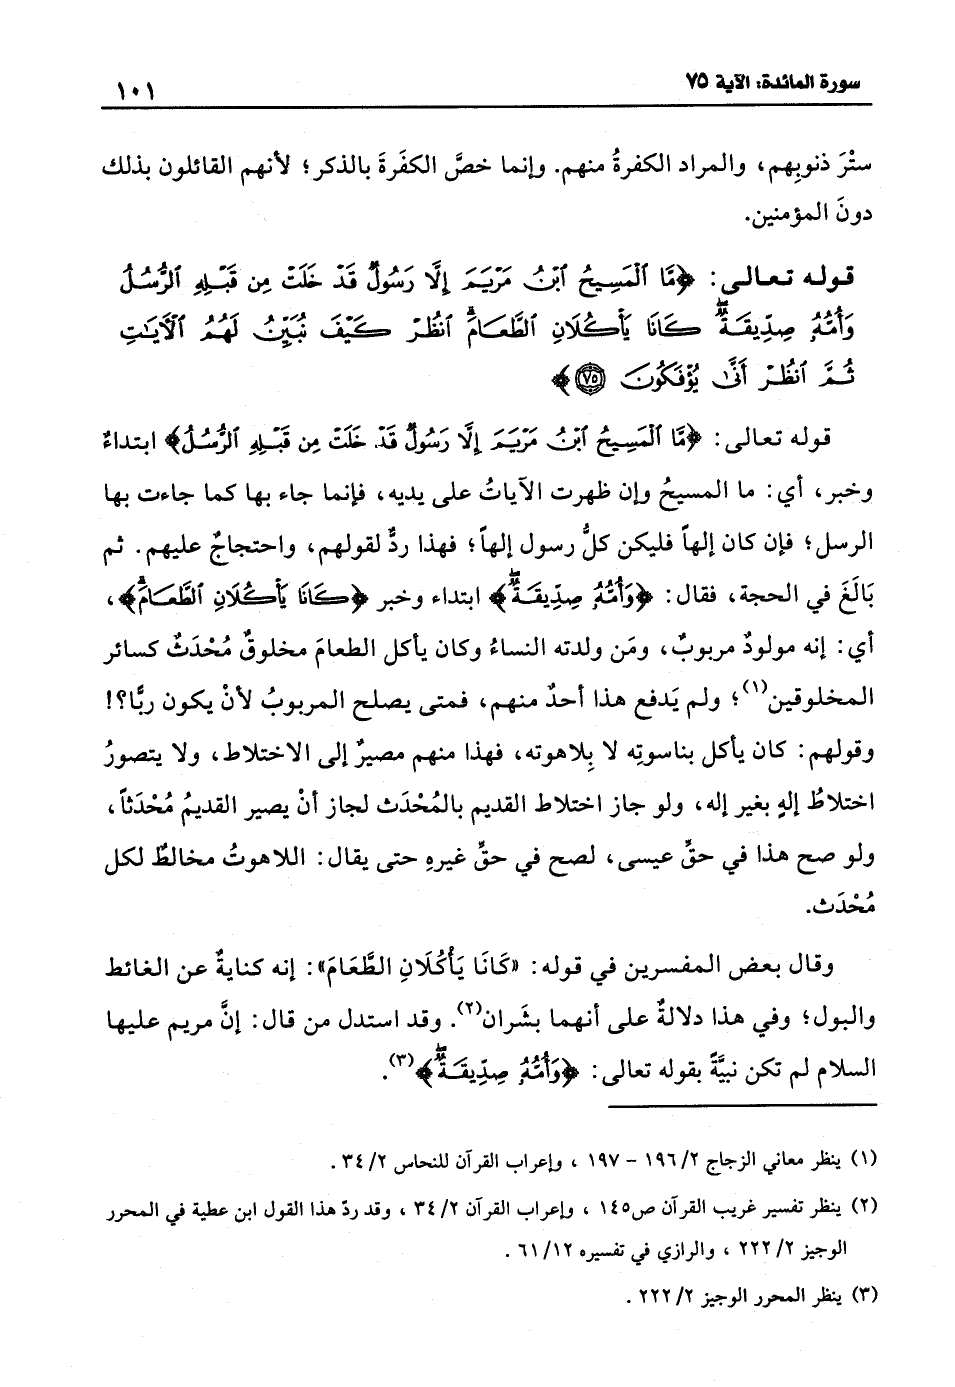 سورة المائدة: الآية ٧٥
١٠١
ستْرَ ذنوبِهم، والمراد الكفرةُ منهم. وإنما خصَّ الكفَرةَ بالذكر؛ لأنهم القائلون بذلك
دونَ المؤمنين.
قوله تعالى: ﴿مَّا ٱلْمَسِيحُ ٱبْنُ مَرْيَمَ إِلَّا رَسُولٌ قَدْ خَلَتْ مِن قَبْلِهِ ٱلرُّسُلُ
وَأُمُّهُۥ صِدِّيقَةٌۖ كَانَا يَأْكُلَانِ ٱلطَّعَامَۗ ٱنظُرْ كَيْفَ نُبَيِّنُ لَهُمُ ٱلْآيَٰتِ
ثُمَّ ٱنظُرْ أَنَّىٰ يُؤْفَكُونَ ٧٥﴾
قوله تعالى: ﴿مَّا ٱلْمَسِيحُ ٱبْنُ مَرْيَمَ إِلَّا رَسُولٌ قَدْ خَلَتْ مِن قَبْلِهِ ٱلرُّسُلُ﴾ ابتداءٌ
وخبر، أي: ما المسيحُ وإن ظهرت الآياتُ على يديه، فإنما جاء بها كما جاءت بها
الرسل؛ فإن كان إلهاً فليكن كلُّ رسول إلهاً؛ فهذا ردٌّ لقولهم، واحتجاجٌ عليهم. ثم
بَالَغَ في الحجة، فقال: ﴿وَأُمُّهُۥ صِدِّيقَةٌۖ﴾ ابتداء وخبر ﴿كَانَا يَأْكُلَانِ ٱلطَّعَامَۗ﴾،
أي: إنه مولودٌ مربوبٌ، ومَن ولدته النساءُ وكان يأكل الطعامَ مخلوقٌ مُحْدَثٌ كسائر
المخلوقين(١)؛ ولم يَدفع هذا أحدٌ منهم، فمتى يصلح المربوبُ لأنْ يكون ربًّا؟!
وقولهم: كان يأكل بناسوتِه لا بِلاهوته، فهذا منهم مصيرٌ إلى الاختلاط، ولا يتصورُ
اختلاطُ إلهٍ بغير إله، ولو جاز اختلاط القديم بالمُحْدَث لجاز أنْ يصير القديمُ مُحْدَثاً،
ولو صح هذا في حقِّ عيسى، لصح في حقِّ غيرهِ حتى يقال: اللاهوتُ مخالطٌ لكل
مُحْدَث.
وقال بعض المفسرين في قوله: «كَانَا يَأْكُلَانِ الطَّعَامَ»: إنه كنايةٌ عن الغائط
والبول؛ وفي هذا دلالةٌ على أنهما بشَران(٢). وقد استدل من قال: إنَّ مريم عليها
السلام لم تكن نبيَّةً بقوله تعالى: ﴿وَأُمُّهُۥ صِدِّيقَةٌۖ﴾(٣).
(١) ينظر معاني الزجاج ١٩٦/٢ - ١٩٧ ، وإعراب القرآن للنحاس ٣٤/٢ .
(٢) ينظر تفسير غريب القرآن ص١٤٥ ، وإعراب القرآن ٣٤/٢ ، وقد ردّ هذا القول ابن عطية في المحرر
الوجيز ٢٢٢/٢ ، والرازي في تفسيره ٦١/١٢ .
(٣) ينظر المحرر الوجيز ٢٢٢/٢ .